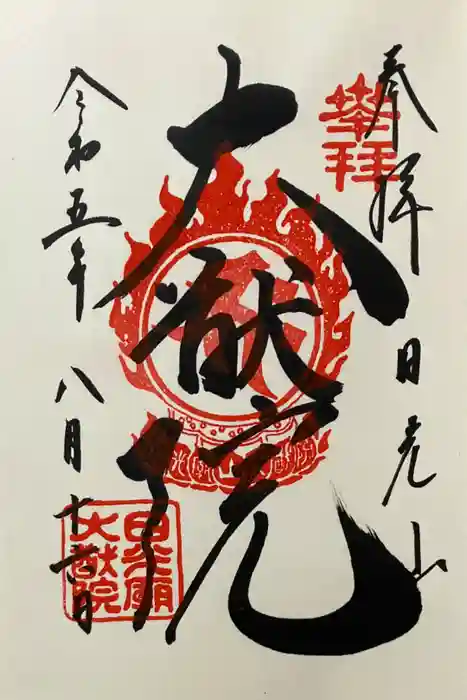 奉拝 日光山
奉拝
大猷院
令和五年 八月十六日
日光廟
大猷院